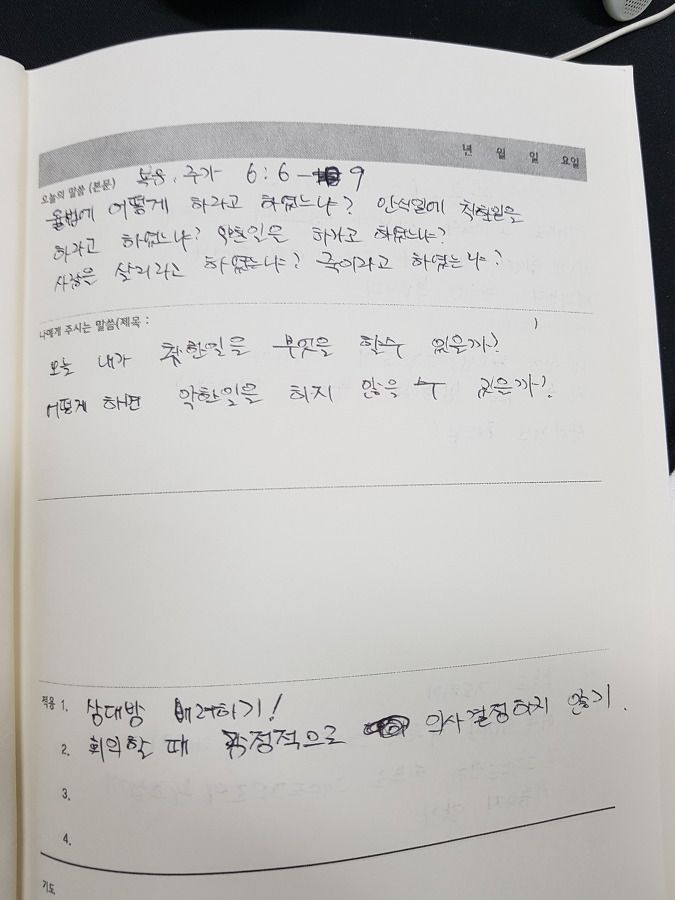 년 월 일 요일
오늘의 말씀 (본문) 복음, 누가 6:6-9
율법에 어떻게 하라고 하였느냐? 안식일에 착한일을
하라고 하였느냐? 악한일은 하라고 하였느냐?
사람을 살리라고 하였느냐? 죽이라고 하였느냐?
나에게 주시는 말씀(제목 : )
오늘 내가 착한일을 무엇을 할수 있을까?
어떻게 하면 악한일을 하지 않을 수 있을까?
적용 1. 상대방 배려하기!
2. 회의할 때 감정적으로 의사결정하지 않기.
3.
4.
기도